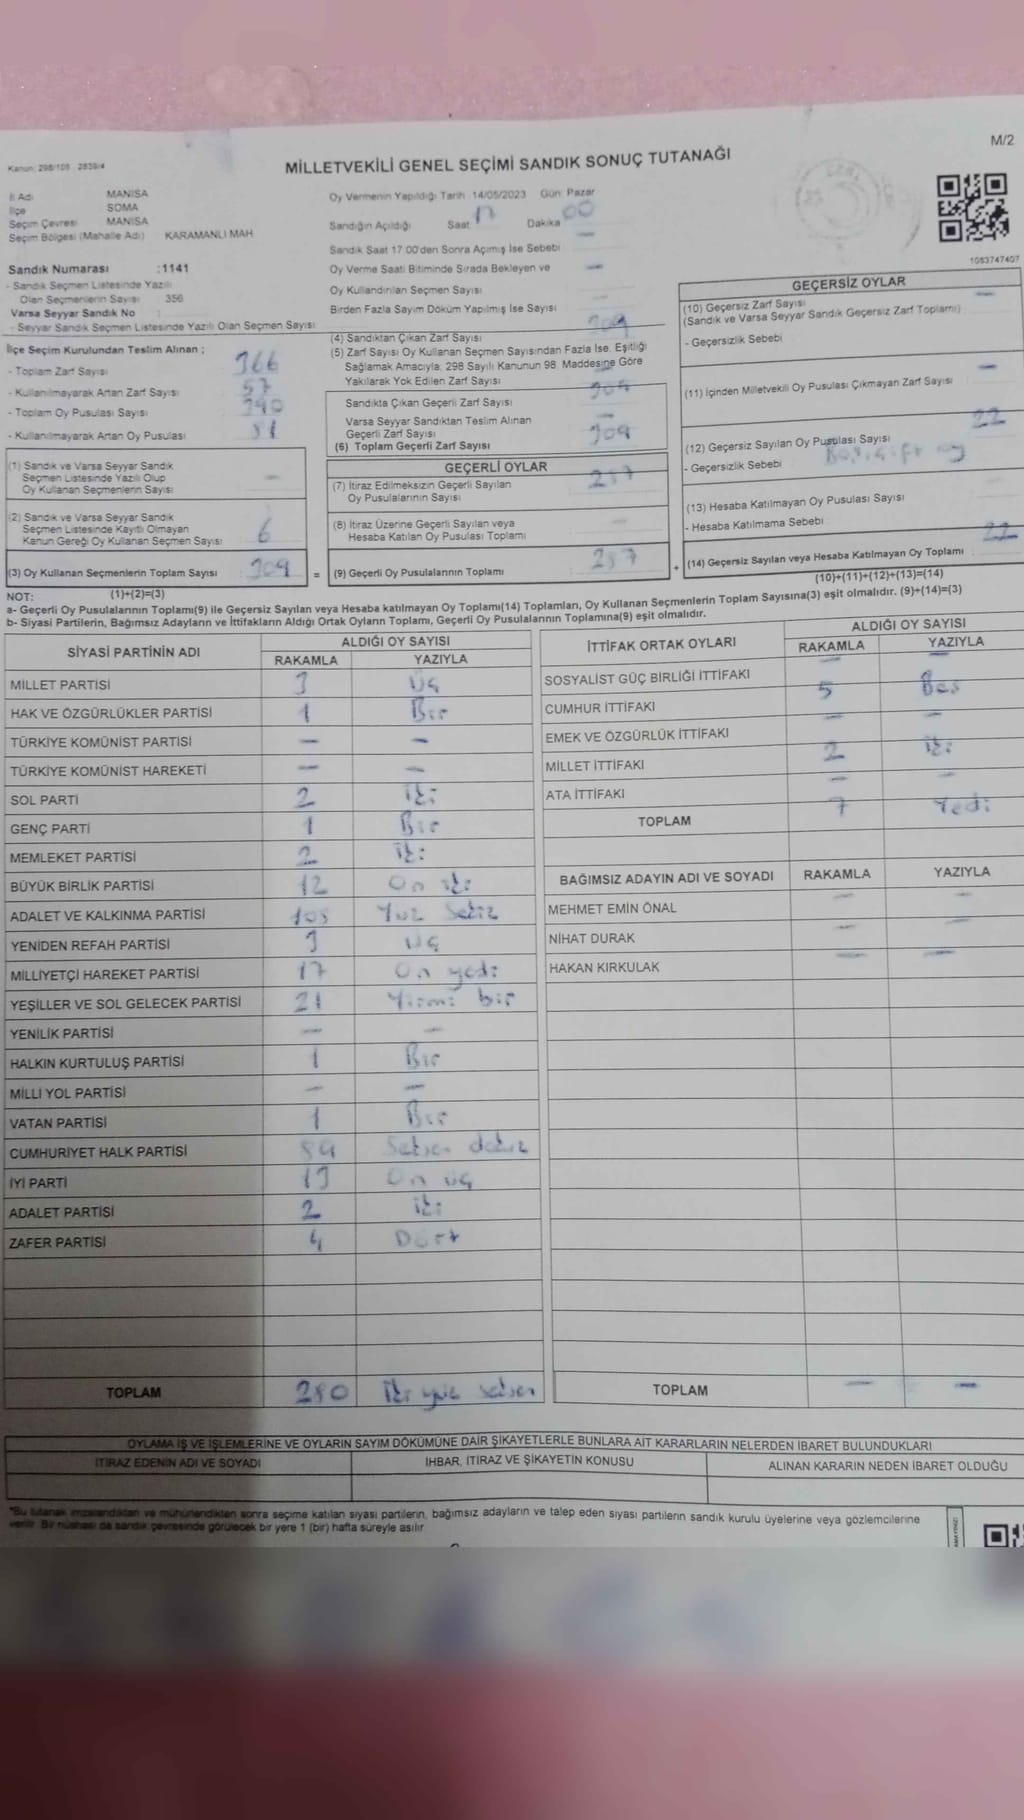 M/2
Kanun: 298/105 2839/4
MİLLETVEKİLİ GENEL SEÇİMİ SANDIK SONUÇ TUTANAĞI
İl Adı MANİSA
İlçe SOMA
Seçim Çevresi MANİSA
Seçim Bölgesi (Mahalle Adı) KARAMANLI MAH.
Sandık Numarası :1141
- Sandık Seçmen Listesinde Yazılı
Olan Seçmenlerin Sayısı 356
Varsa Seyyar Sandık No :
- Seyyar Sandık Seçmen Listesinde Yazılı Olan Seçmen Sayısı
Oy Vermenin Yapıldığı Tarih 14/05/2023 Gün: Pazar
Sandığın Açıldığı Saat 17 Dakika 00
Sandık Saat 17:00'den Sonra Açımış İse Sebebi —
Oy Verme Saati Bitiminde Sırada Bekleyen ve
Oy Kullandırılan Seçmen Sayısı —
Birden Fazla Sayım Döküm Yapılmış İse Sayısı —
1083747407
İlçe Seçim Kurulundan Teslim Alınan ;
- Toplam Zarf Sayısı 366
- Kullanılmayarak Artan Zarf Sayısı 57
- Toplam Oy Pusulası Sayısı 390
- Kullanılmayarak Artan Oy Pusulası 81
(1) Sandık ve Varsa Seyyar Sandık
Seçmen Listesinde Yazılı Olup
Oy Kullanan Seçmenlerin Sayısı —
(2) Sandık ve Varsa Seyyar Sandık
Seçmen Listesinde Kayıtlı Olmayan
Kanun Gereği Oy Kullanan Seçmen Sayısı 6
(3) Oy Kullanan Seçmenlerin Toplam Sayısı 309 =
(4) Sandıktan Çıkan Zarf Sayısı 309
(5) Zarf Sayısı Oy Kullanan Seçmen Sayısından Fazla İse, Eşitliği
Sağlamak Amacıyla, 298 Sayılı Kanunun 98. Maddesine Göre
Yakılarak Yok Edilen Zarf Sayısı —
Sandıkta Çıkan Geçerli Zarf Sayısı 309
Varsa Seyyar Sandıktan Teslim Alınan
Geçerli Zarf Sayısı —
(6) Toplam Geçerli Zarf Sayısı 309
GEÇERLİ OYLAR
(7) İtiraz Edilmeksizin Geçerli Sayılan
Oy Pusulalarının Sayısı 287
(8) İtiraz Üzerine Geçerli Sayılan veya
Hesaba Katılan Oy Pusulası Toplamı —
(9) Geçerli Oy Pusulalarının Toplamı 287 +
GEÇERSİZ OYLAR
(10) Geçersiz Zarf Sayısı —
(Sandık ve Varsa Seyyar Sandık Geçersiz Zarf Toplamı)
- Geçersizlik Sebebi
(11) İçinden Milletvekili Oy Pusulası Çıkmayan Zarf Sayısı —
(12) Geçersiz Sayılan Oy Pusulası Sayısı 22
- Geçersizlik Sebebi Boş, çift oy
(13) Hesaba Katılmayan Oy Pusulası Sayısı —
- Hesaba Katılmama Sebebi
(14) Geçersiz Sayılan veya Hesaba Katılmayan Oy Toplamı 22
NOT: (1)+(2)=(3) (10)+(11)+(12)+(13)=(14)
a- Geçerli Oy Pusulalarının Toplamı(9) ile Geçersiz Sayılan veya Hesaba katılmayan Oy Toplamı(14) Toplamları, Oy Kullanan Seçmenlerin Toplam Sayısına(3) eşit olmalıdır. (9)+(14)=(3)
b- Siyasi Partilerin, Bağımsız Adayların ve İttifakların Aldığı Ortak Oyların Toplamı, Geçerli Oy Pusulalarının Toplamına(9) eşit olmalıdır.
SİYASİ PARTİNİN ADI ALDIĞI OY SAYISI
RAKAMLA YAZIYLA
MİLLET PARTİSİ 3 Üç
HAK VE ÖZGÜRLÜKLER PARTİSİ 1 Bir
TÜRKİYE KOMÜNİST PARTİSİ — —
TÜRKİYE KOMÜNİST HAREKETİ — —
SOL PARTİ 2 İki
GENÇ PARTİ 1 Bir
MEMLEKET PARTİSİ 2 İki
BÜYÜK BİRLİK PARTİSİ 12 On iki
ADALET VE KALKINMA PARTİSİ 108 Yüz Sekiz
YENİDEN REFAH PARTİSİ 3 Üç
MİLLİYETÇİ HAREKET PARTİSİ 17 On yedi
YEŞİLLER VE SOL GELECEK PARTİSİ 21 Yirmi bir
YENİLİK PARTİSİ — —
HALKIN KURTULUŞ PARTİSİ 1 Bir
MİLLİ YOL PARTİSİ — —
VATAN PARTİSİ 1 Bir
CUMHURİYET HALK PARTİSİ 89 Seksen dokuz
İYİ PARTİ 13 On üç
ADALET PARTİSİ 2 İki
ZAFER PARTİSİ 4 Dört
TOPLAM 280 İki yüz seksen
İTTİFAK ORTAK OYLARI ALDIĞI OY SAYISI
RAKAMLA YAZIYLA
SOSYALİST GÜÇ BİRLİĞİ İTTİFAKI — —
CUMHUR İTTİFAKI 5 Beş
EMEK VE ÖZGÜRLÜK İTTİFAKI — —
MİLLET İTTİFAKI 2 İki
ATA İTTİFAKI — —
TOPLAM 7 Yedi
BAĞIMSIZ ADAYIN ADI VE SOYADI RAKAMLA YAZIYLA
MEHMET EMİN ÖNAL — —
NİHAT DURAK — —
HAKAN KIRKULAK — —
TOPLAM — —
OYLAMA İŞ VE İŞLEMLERİNE VE OYLARIN SAYIM DÖKÜMÜNE DAİR ŞİKAYETLERLE BUNLARA AİT KARARLARIN NELERDEN İBARET BULUNDUKLARI
İTİRAZ EDENİN ADI VE SOYADI İHBAR, İTİRAZ VE ŞİKAYETİN KONUSU ALINAN KARARIN NEDEN İBARET OLDUĞU
*Bu tutanak imzalandıktan ve mühürlendikten sonra seçime katılan siyasi partilerin, bağımsız adayların ve talep eden siyasi partilerin sandık kurulu üyelerine veya gözlemcilerine
verilir. Bir nüshası da sandık çevresinde görülecek bir yere 1 (bir) hafta süreyle asılır.